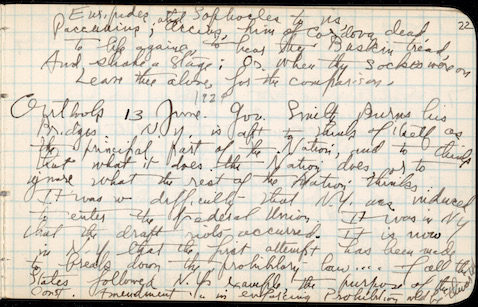 22
Euripides, and Sophocles to us,
Paccuvius, Accius, him of Cordova dead,
To life againe, to hear thy Buskin tread,
And shake a Stage; Or, when thy Sockes were on
Leave thee alone, for the comparison.
1929
13 June. Gov. Smith Burns his
Bridges N.Y. is apt to think of itself as
the principal part of the Nation, and to think
that what it does the Nation does, or to
ignore what the rest of the Nation thinks.
It was w difficulty that N.Y. was induced
to enter the Federal Union. It was in NY
that the draft riots occurred. It is now
in N.Y. that the first attempt has been made
to break down the prohibitory law.... If all the
States followed N.Y's example, the purpose of the
Const. Amendment in enforcing Prohibition wld be